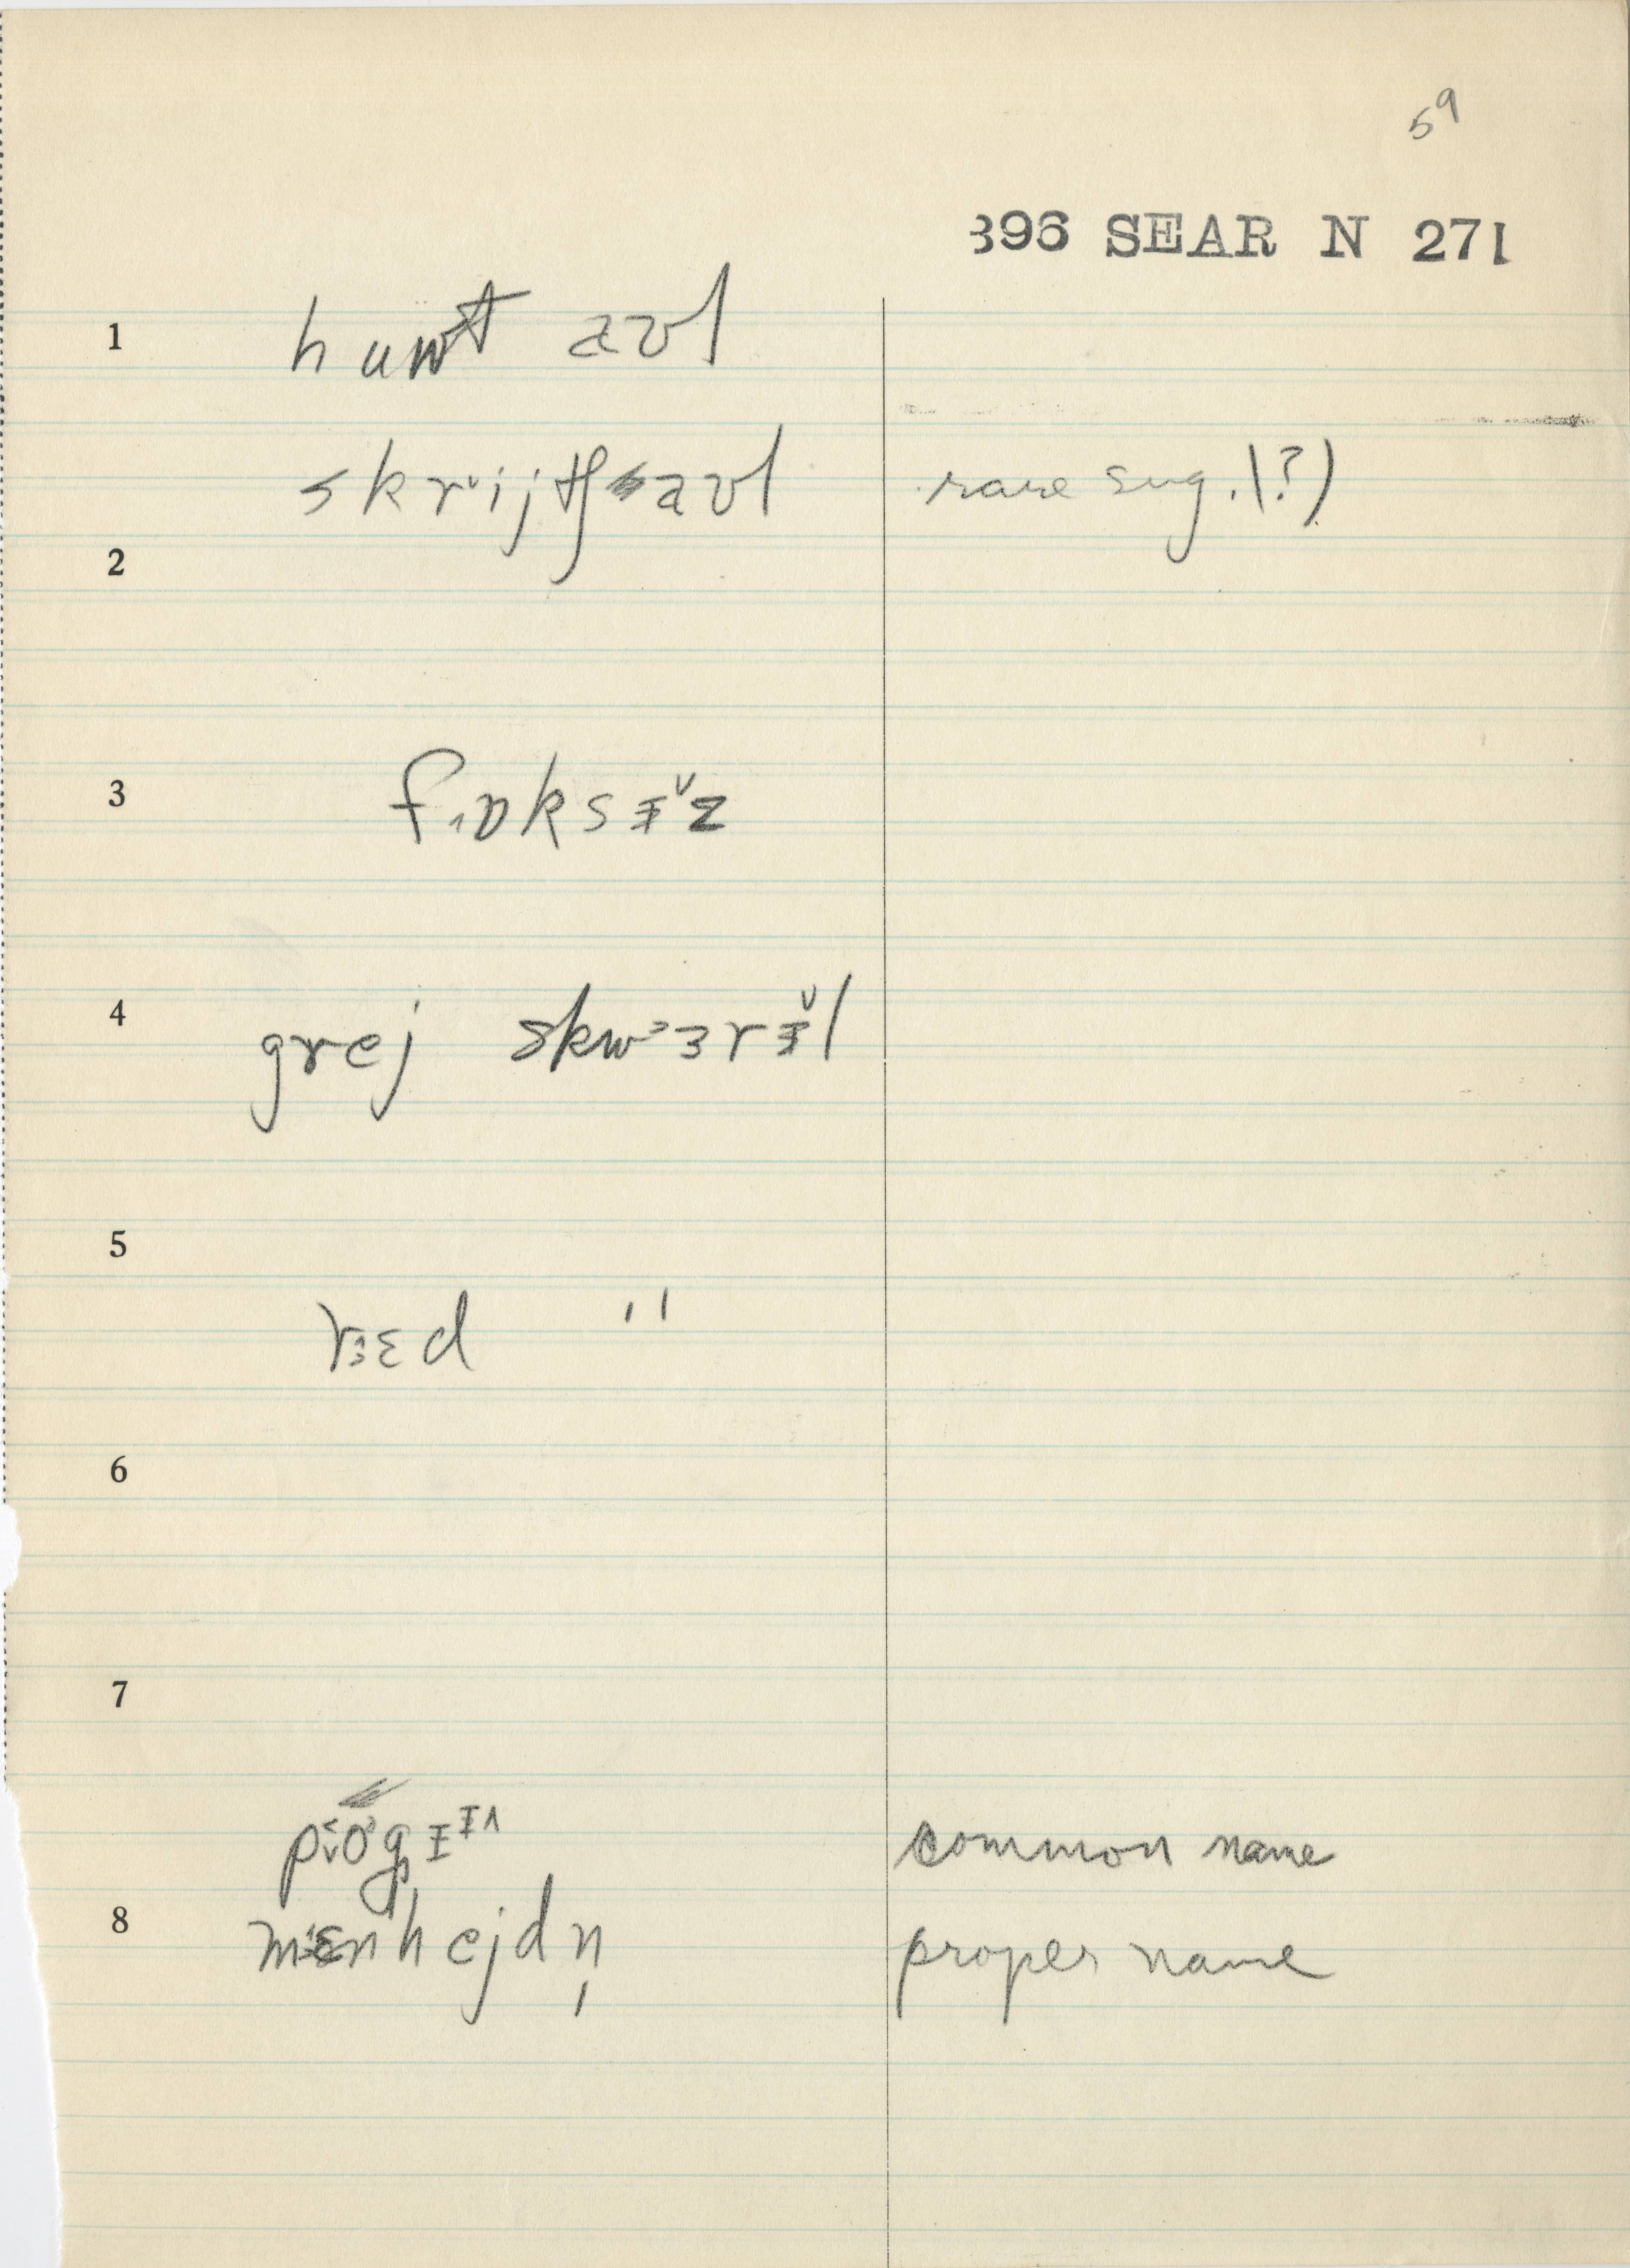 59
396 SEAR N 271
1 huwt aʊl
skrˇijtʃ aʊl rare sug. (?)
2
3 fˌɒksɪ̵ˇz
4 grej skwɜrɪ̵ˇl
5
rɛd "
6
7
common name
8 mɛnhejdn̩ proper name